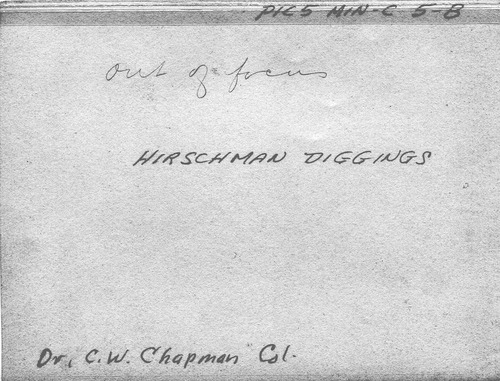 PICS MIN-C 5-8
out of focus
HIRSCHMAN DIGGINGS
Dr. C.W. Chapman Col.